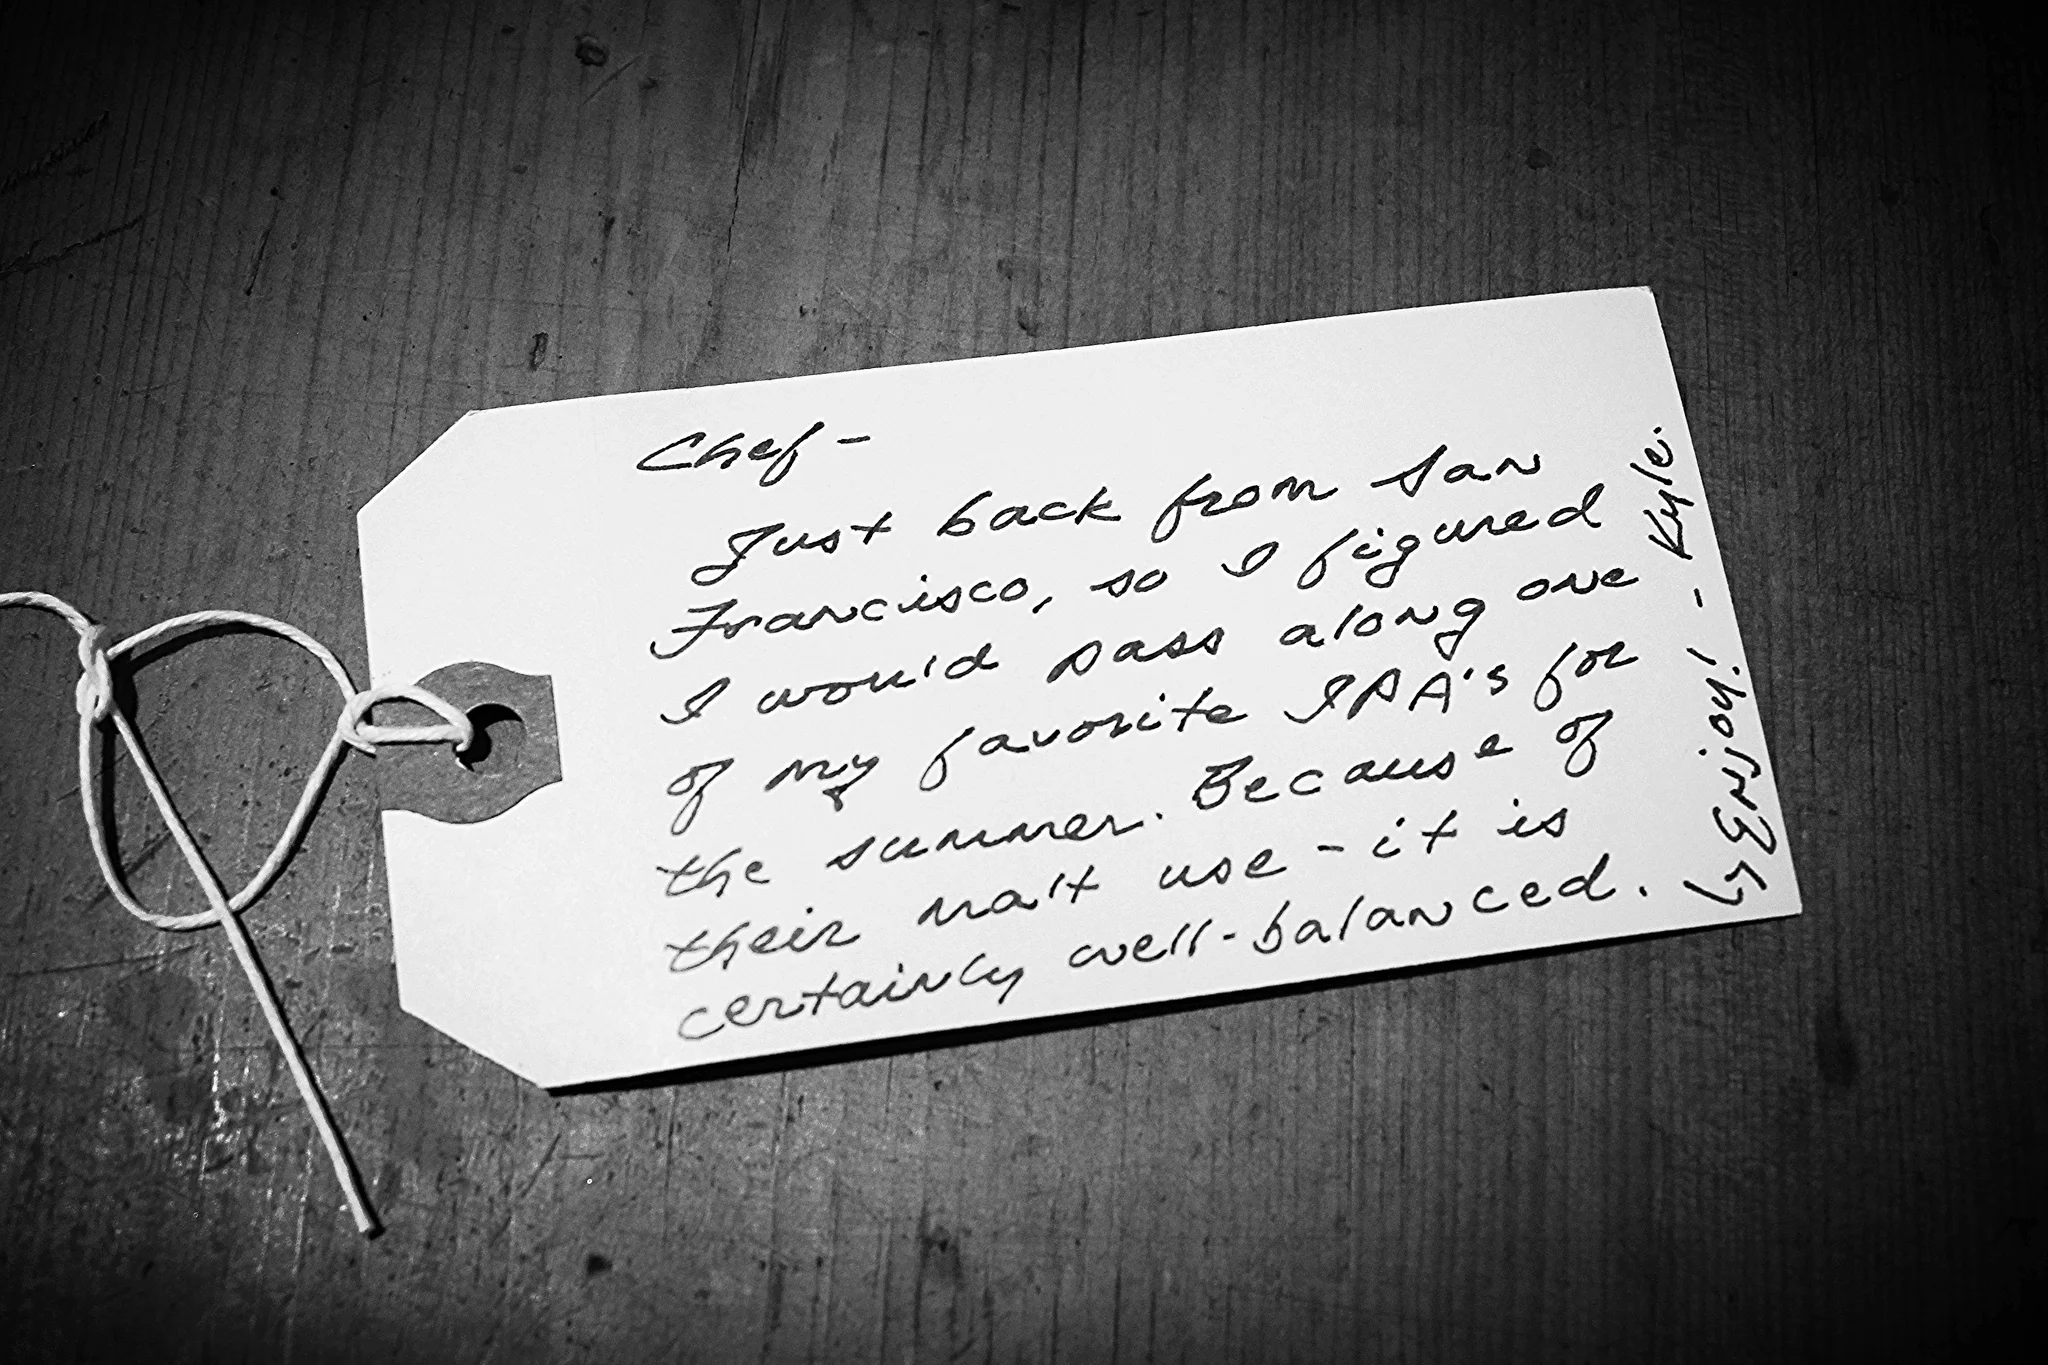 Chef -
Just back from San
Francisco, so I figured
I would pass along one
of my favorite IPA's for
the summer. Because of
their malt use - it is
certainly well-balanced.
↳ Enjoy! - Kyle.